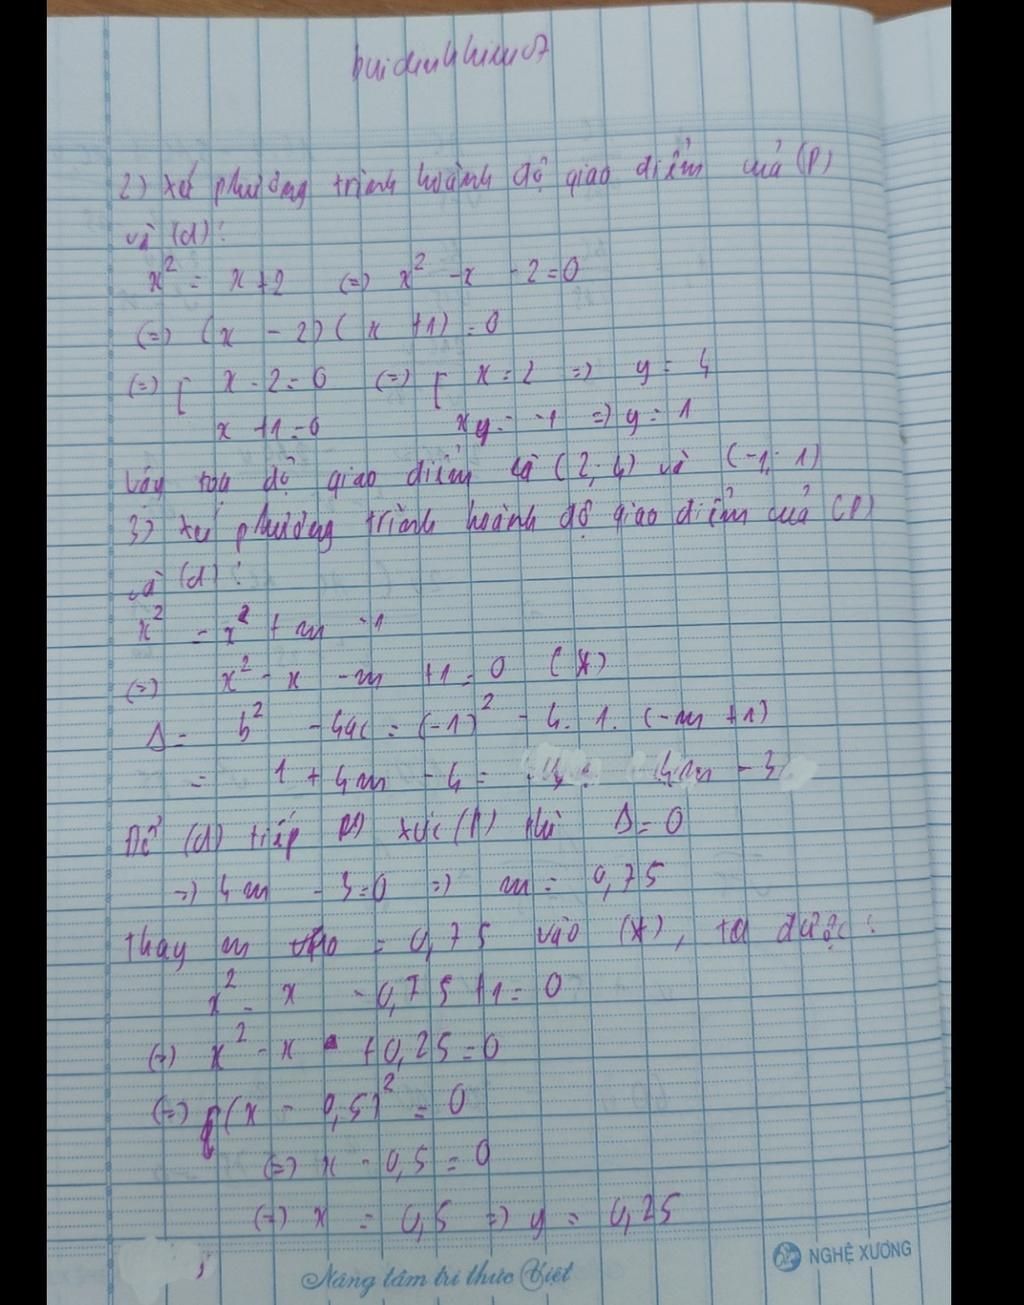 buidinhhieu07
2) xét phương trình hoành độ giao điểm của (P)
và (d):
x² = x + 2 (=) x² - x - 2 = 0
(=) (x - 2)(x + 1) = 0
(=) [ x - 2 = 0 (=) [ x = 2 => y = 4
x + 1 = 0 x = -1 => y = 1
Vậy toạ độ giao điểm là (2; 4) và (-1; 1)
3) xét phương trình hoành độ giao điểm của (P)
và (d):
x² = x + m - 1
(=) x² - x - m + 1 = 0 (*)
Δ = b² - 4ac = (-1)² - 4. 1. (-m + 1)
= 1 + 4m - 4 = 4m - 3
Để (d) tiếp xúc (P) thì Δ = 0
=> 4m - 3 = 0 => m = 0,75
Thay m = 0,75 vào (*), ta được:
x² - x - 0,75 + 1 = 0
(=) x² - x + 0,25 = 0
(=) (x - 0,5)² = 0
(=) x - 0,5 = 0
(=) x = 0,5 => y = 0,25
Nâng tầm tri thức Việt
NGHỆ XƯƠNG